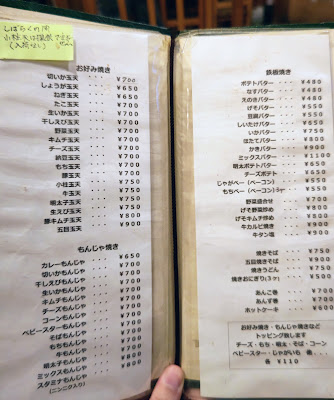 しばらくの間
小柱天は提供できません
(入荷なし)
お好み焼き
切いか玉天 ¥700
しょうが玉天 ¥650
ねぎ玉天 ¥650
たこ玉天 ¥700
生いか玉天 ¥700
干しえび玉天 ¥700
野菜玉天 ¥700
キムチ玉天 ¥700
チーズ玉天 ¥700
納豆玉天 ¥700
もち玉天 ¥700
豚玉天 ¥700
小柱玉天 ¥750
牛玉天 ¥750
明太子玉天 ¥750
生えび玉天 ¥750
豚キムチ玉天 ¥800
五目玉天 ¥900
もんじゃ焼き
カレーもんじゃ ¥650
切いかもんじゃ ¥700
干しえびもんじゃ ¥700
生いかもんじゃ ¥700
キムチもんじゃ ¥700
チーズもんじゃ ¥700
コーンもんじゃ ¥700
ベビースターもんじゃ ¥700
そばもんじゃ ¥700
もちもんじゃ ¥700
牛もんじゃ
明太子もんじゃ
ミックスもんじゃ
スタミナもんじゃ
(ニンニク入り)
鉄板焼き
ポテトバター ¥480
なすバター ¥480
えのきバター ¥480
げそバター
豆腐バター
しいたけバター
いかバター ¥750
ほたてバター
かきバター ¥900
ミックスバター ¥1100
明太ポテトバター
チーズポテト
じゃがベー(ベーコン)
もちベー(ベーコン)
野菜盛合せ ¥700
げそ野菜炒め ¥800
げそキムチ炒め ¥800
牛カルビ焼き ¥900
牛タン塩 ¥900
焼きそば ¥750
五目焼きそば ¥900
焼きうどん ¥750
焼きおにぎり(3ヶ) ¥500
あんこ巻 ¥700
あんず巻 ¥700
ホットケーキ ¥600
お好み焼き・もんじゃ焼きなど
トッピング致します
チーズ・もち・明太・そば・コーン
ベビースター・じゃがいも
各 ¥110